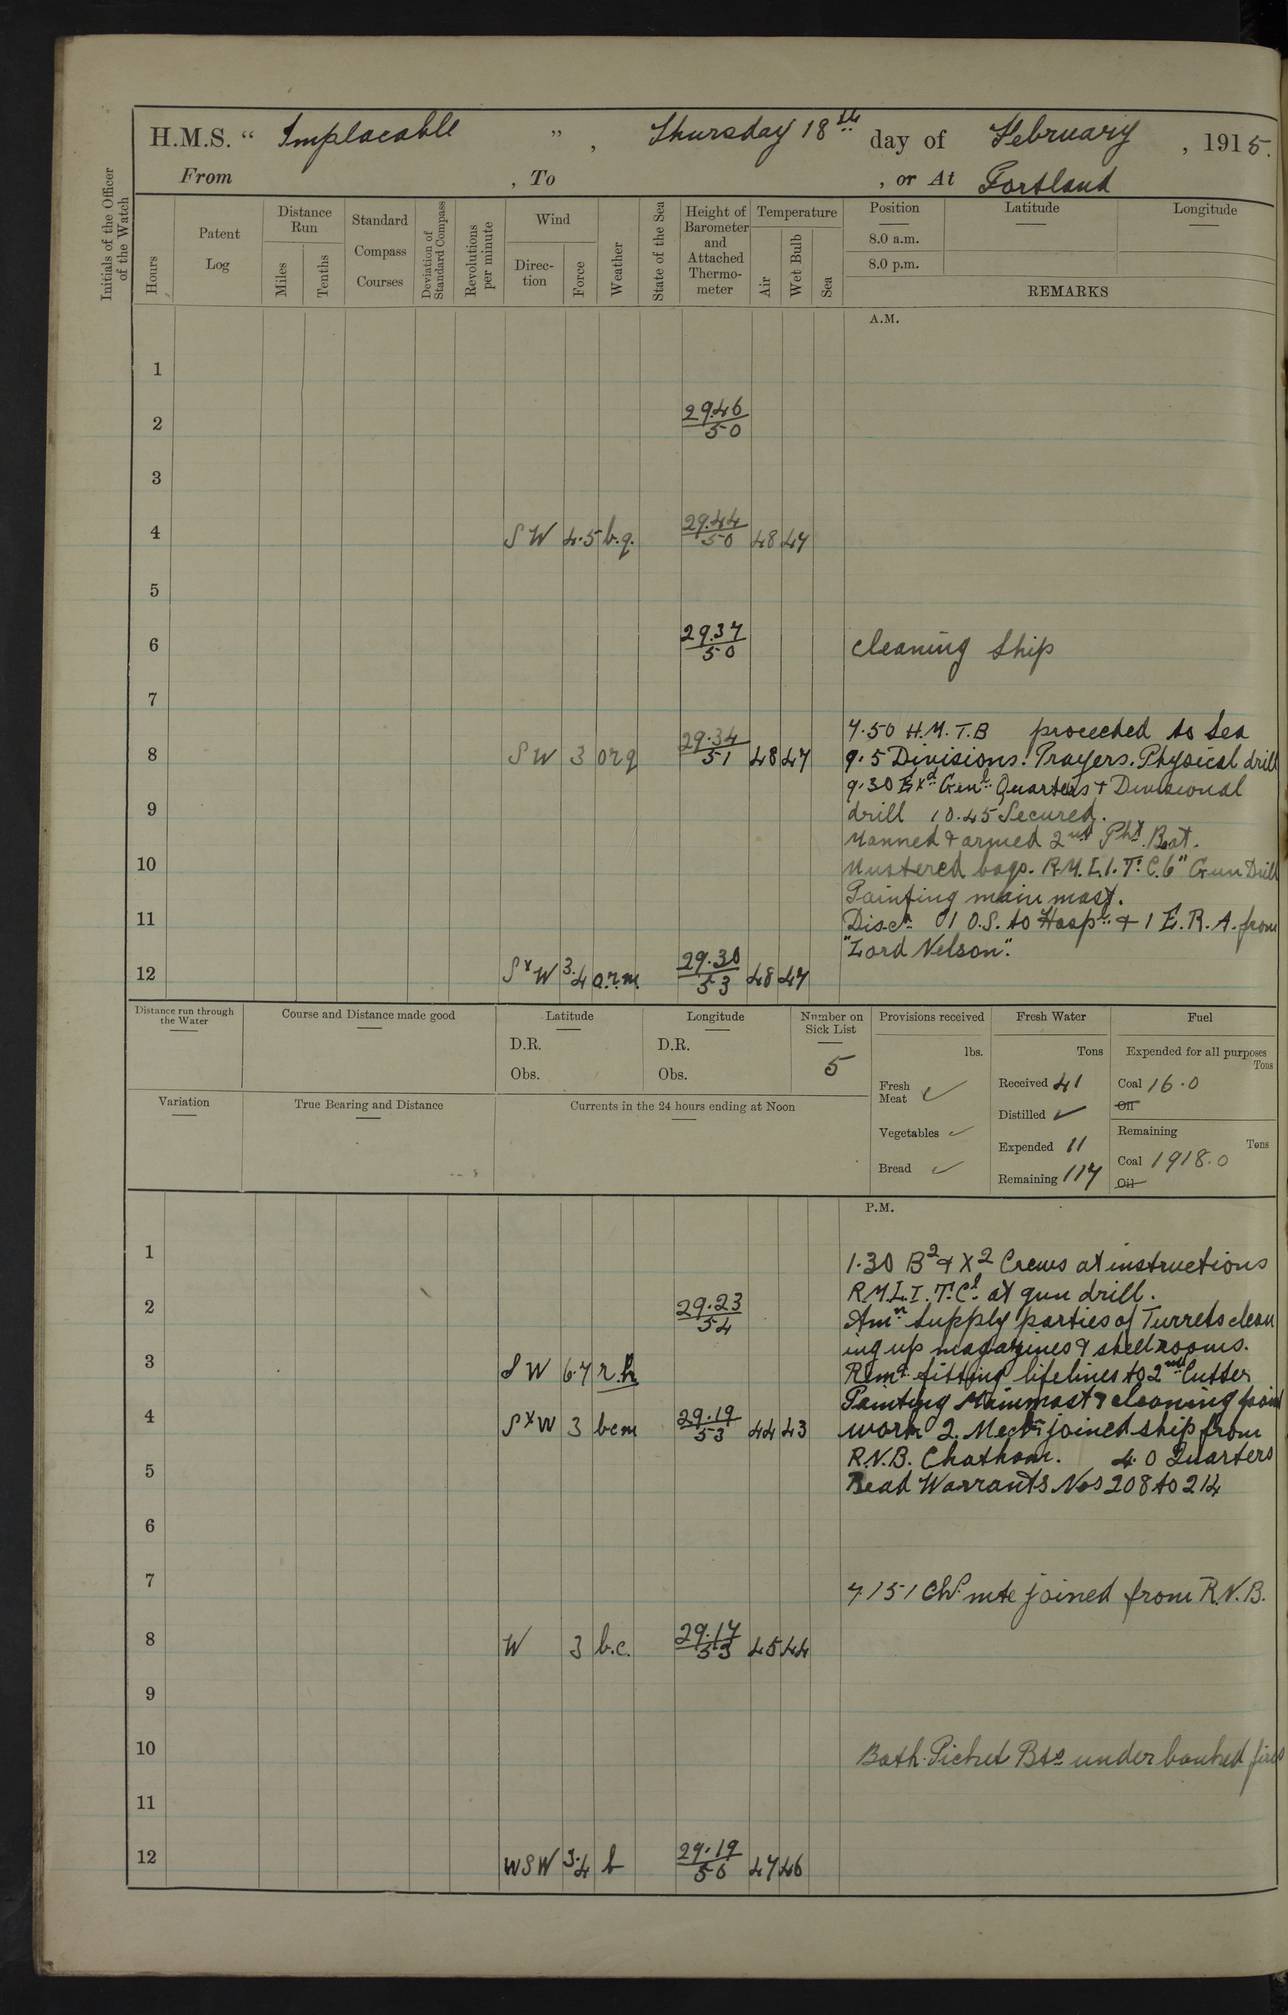 H.M.S. " Implacable ", Thursday 18th day of February, 1915.
From , To , or At Portland
Initials of the Officer of the Watch
Hours
Patent Log
Distance Run
Miles
Tenths
Standard Compass Courses
Deviation of Standard Compass
Revolutions per minute
Wind
Direction
Force
Weather
State of the Sea
Height of Barometer and Attached Thermometer
Temperature
Air
Wet Bulb
Sea
Position Latitude Longitude
8.0 a.m.
8.0 p.m.
REMARKS
A.M.
1
2 29.46/50
3
4 SW 4.5 b.q. 29.44/50 48 47
5
6 29.37/50 Cleaning Ship
7
8 SW 3 orq 29.34/51 48 47
7.50 H.M.T.B proceeded to Sea
9.5 Divisions. Prayers. Physical drill
9.30 Exd. Genl. Quarters & Divisional
9
drill 10.45 Secured.
Manned & armed 2nd Pkt. Boat.
10
Mustered bags. R.M.L.I. T.C. 6" Gun Drill
Painting main mast.
11
Disch. 1 O.S. to Hospl. & 1 E.R.A. from
"Lord Nelson".
12 SxW 3.4 o.r.m. 29.30/53 48 47
Distance run through the Water
Course and Distance made good
Latitude
D.R.
Obs.
Longitude
D.R.
Obs.
Number on Sick List
5
Provisions received
lbs.
Fresh Meat ✓
Vegetables ✓
Bread ✓
Fresh Water
Tons
Received 41
Distilled ✓
Expended 11
Remaining 117
Fuel
Expended for all purposes
Tons
Coal 16.0
Oil
Remaining
Tons
Coal 1918.0
Oil
Variation
True Bearing and Distance
Currents in the 24 hours ending at Noon
P.M.
1
1.30 B2 & X2 Crews at instructions
R.M.L.I. T.Cl. at gun drill.
2 29.23/54
Amn. Supply parties of Turrets clean
ing up magazines & shell rooms.
3 SW 6.7 r.h
Remr. fitting lifelines to 2nd Cutter
Painting Mainmast & cleaning paint
4 SxW 3 bcm 29.19/53 44 43
work 2 joined ship from
R.N.B. Chatham. 4.0 Quarters
5
Read Warrants Nos 208 to 214
6
7
7.15 1 Ch. mte joined from R.N.B.
8 W 3 b.c. 29.17/53 45 44
9
10 Both Picket Bts under banked fires
11
12 WSW 3.4 b 29.19/56 47 46